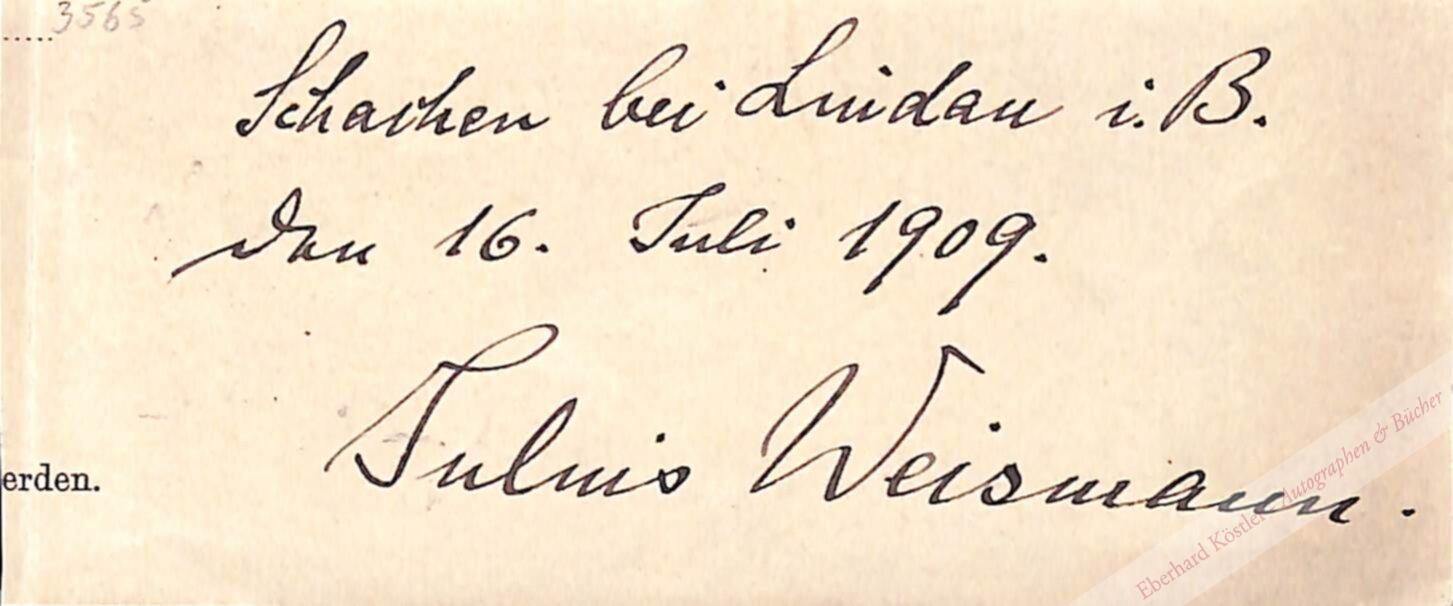 3565
Schachen bei Lindau i. B.
den 16. Juli 1909.
Julius Weismann.
erden.
Eberhard Köstler Autographen & Bücher